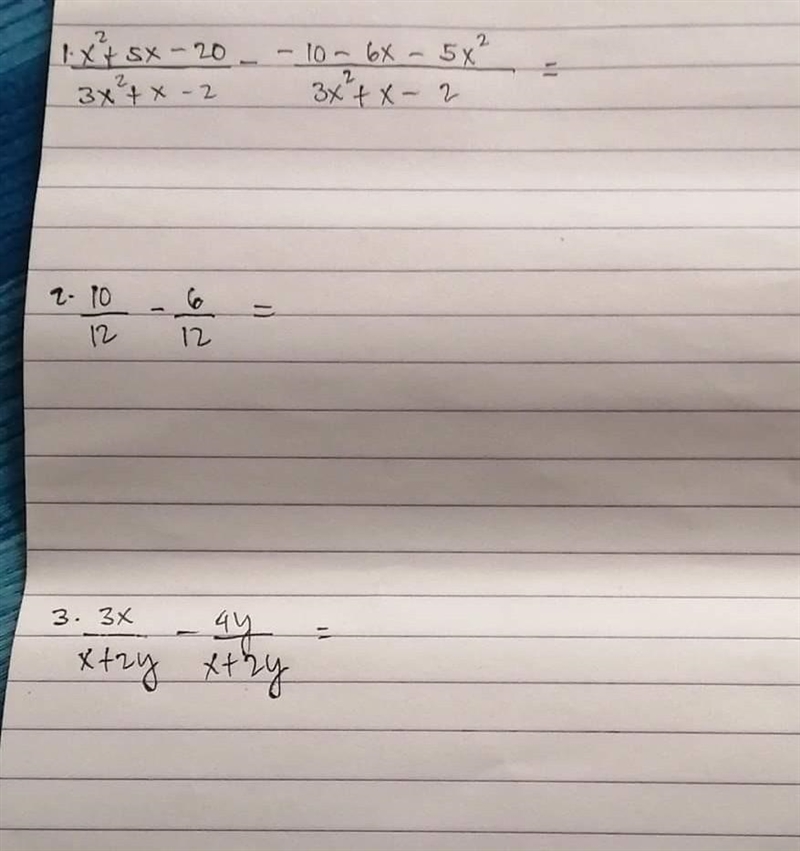 1. x²+5x-20 / 3x²+x-2 - -10-6x-5x² / 3x²+x-2 =
2. 10/12 - 6/12 =
3. 3x / x+2y - 4y / x+2y =